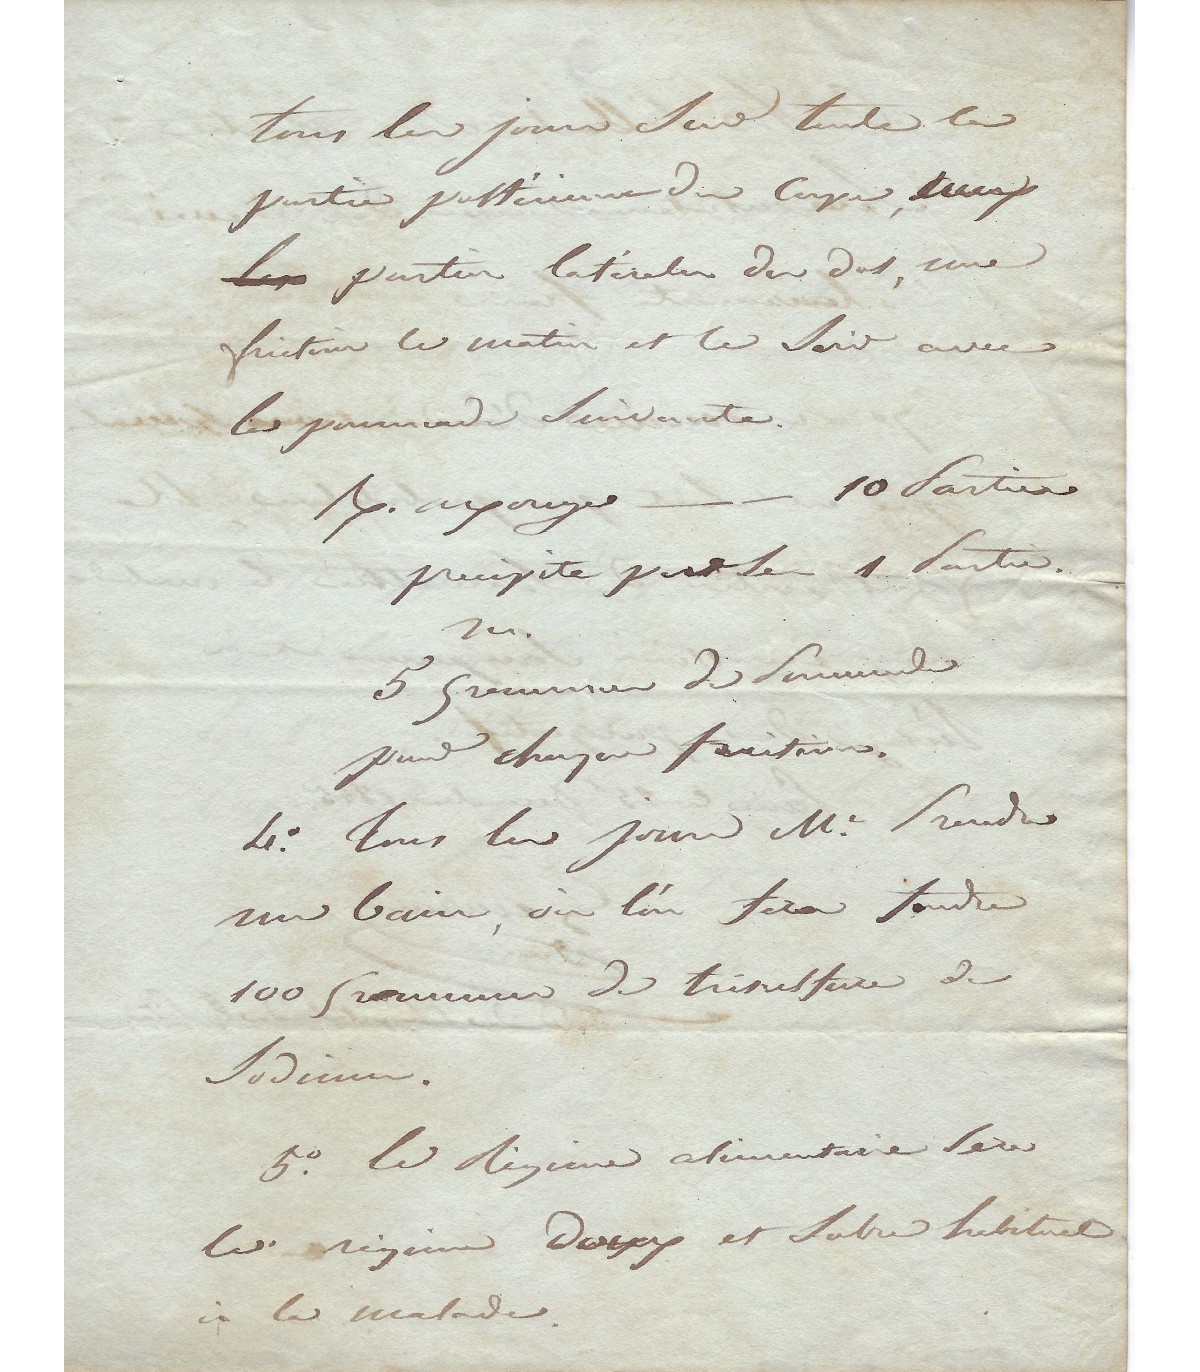 tous les jours sur toute la
partie postérieure du corps, aux
les parties latérales du dos, une
friction le matin et le soir avec
la pommade suivante.
R. axonge — — 10 parties
précipité per se 1 partie.
m.
5 grammes de pommade
pour chaque friction.
4.° tous les jours M.e prendra
un bain, où l'on fera fondre
100 grammes de trisulfure de
sodium.
5.° le régime alimentaire sera
le régime doux et sobre habituel
à la malade.